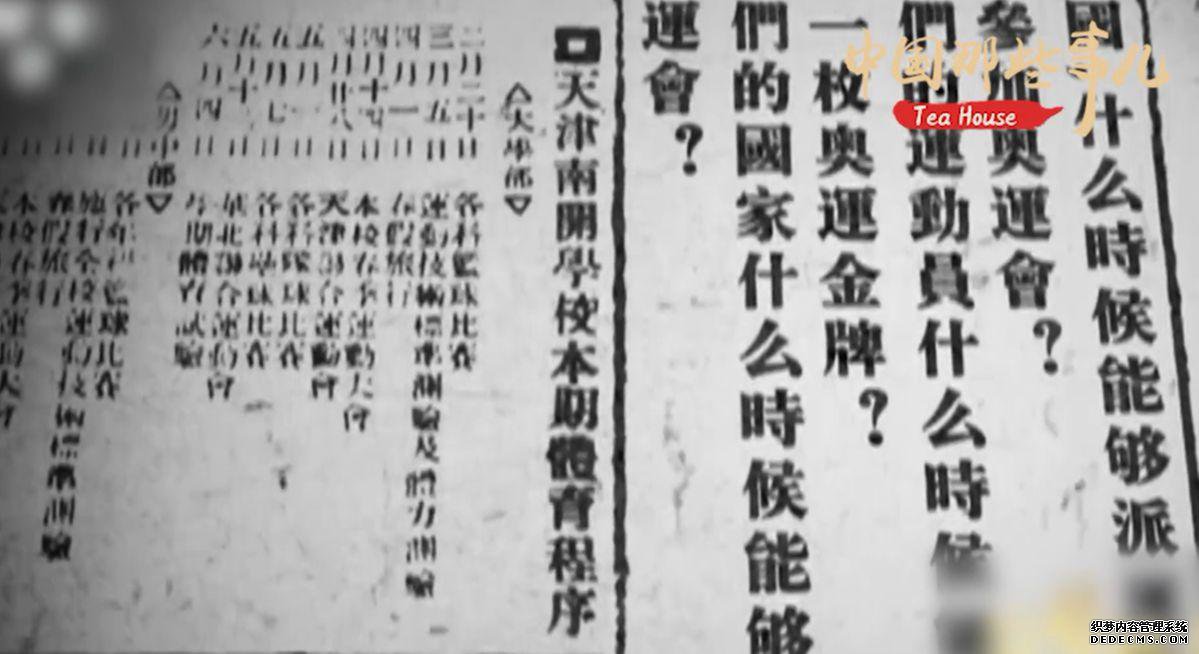 中国那些事儿
Tea House
國什么時候能够派
參加奧運會？
們的運動員什么時候
一枚奧運金牌？
們的國家什么時候能够
運會？
天津南開學校本期體育程序
大學部
二月二十日 各科籃球比賽
三月五日 運動技術標準測驗及體力測驗
四月一日 春假旅行
四月十四日 本校春季運動大會
四月廿八日 天津聯合運動會
五月 日 各科隊球比賽
五月七日 各科壘球比賽
五月十二日 華北聯合運動會
六月四日 體育試驗
男中部
籃球比賽
施行全校運動技術標準測驗
春假旅行
本校春季運動大會
织梦内容管理系统
DEDECMS.COM